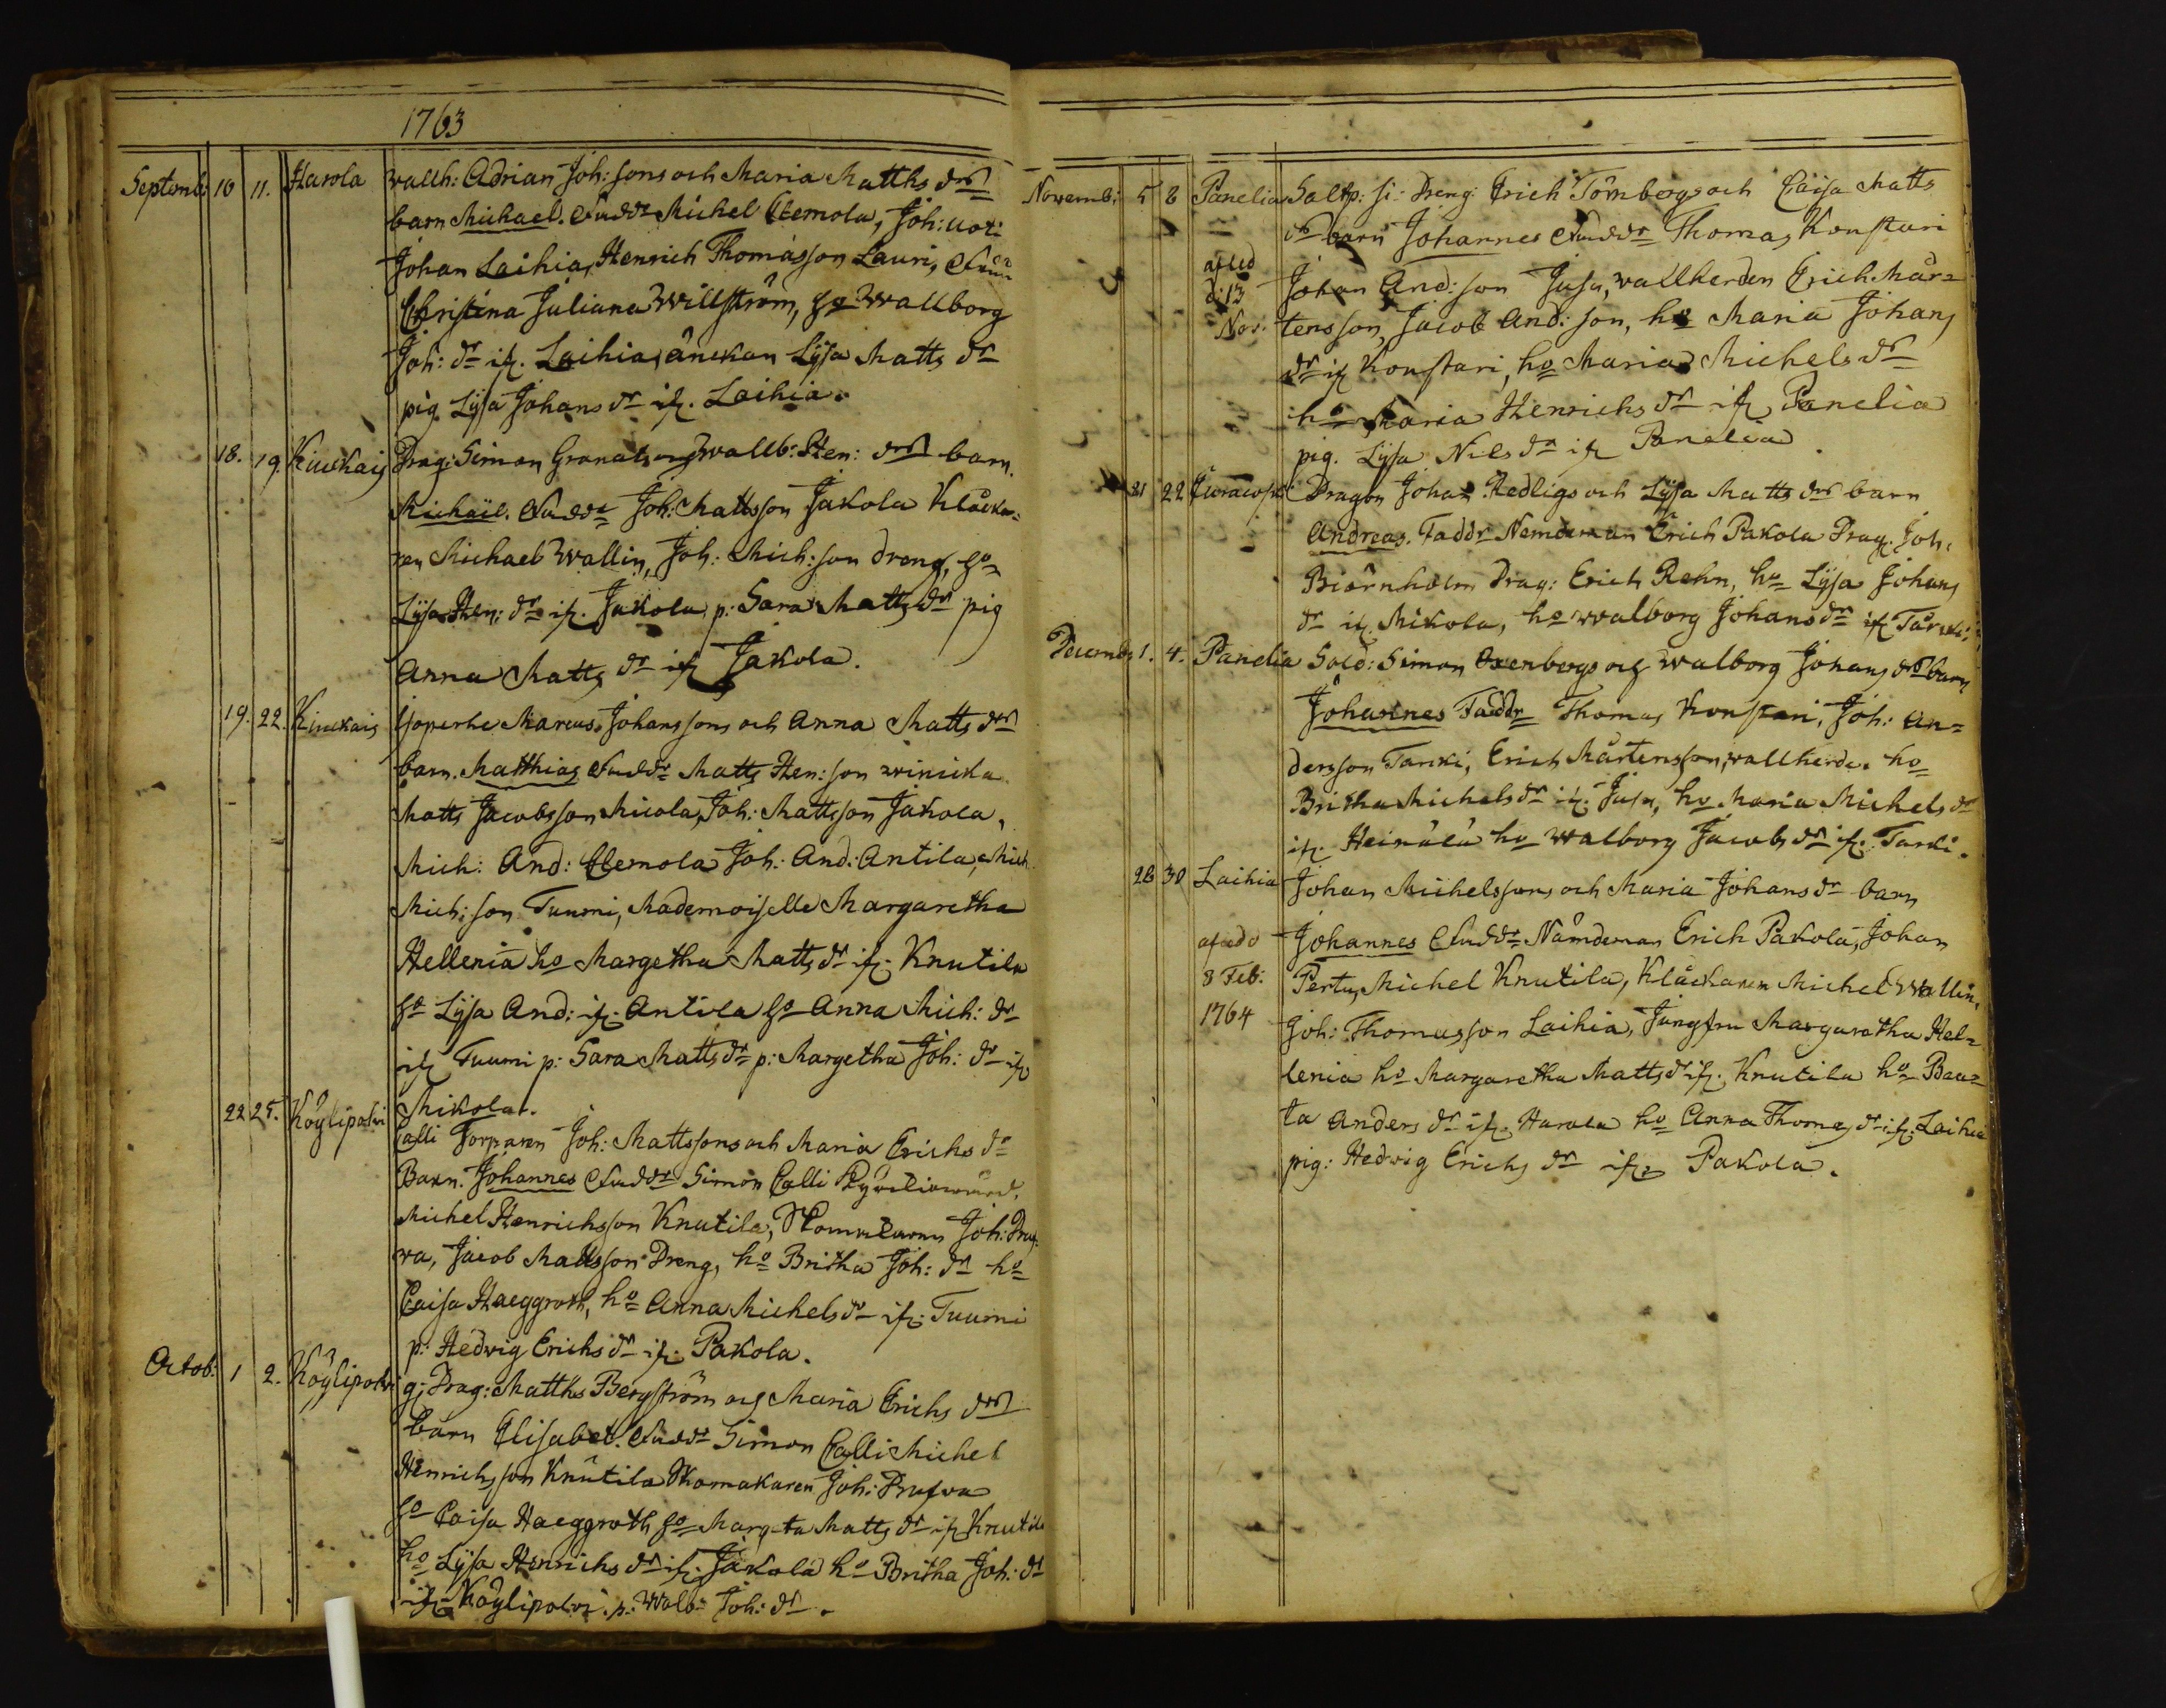 1763
Septemb: 10 11. Harola wallh: Adrian Joh: sons och Maria Matths drs
barn Michael. Faddr Michel Clemola, Joh: uoti
Johan Laihia, Henrich Thomasson Lauri,
Christina Juliana Willström, ho Wallborg
Joh: dr ifr. Laihia, änckan Lysa Matts dr
pig Lysa Johans dr ifr. Laihia.
18. 19 Kiuckais Drag: Simon Granats och Wallb: Hen: drs barn.
Michaël. Faddr Joh: Mattsson Jakola Klåcka-
ren Michael Wallin, Joh: Mich: son dreng, ho
Lysa Hen: dr ifr. Jakola p: Sara Matts dr pig
Anna Matts dr ifr Jakola.
19. 22. Kiuckais Marcus Johanssons och Anna Matts drs
barn. Matthias Faddr Matts Hen: son winicka
Matts Jacobsson Micola, Joh: Mattsson Jakola,
Mich: And: Clemola Joh: And: Antila, Mich
Mich: son Tuumi, Mademoiselle Margaretha
Hellenia ho Margetha Matts dr ifr. Knutila
ho Lysa And: ifr. Antila ho Anna Mich: dr
ifr Tuumi p: Sara Matts dr p: Margetha Joh: dr ifr
Mikola.
22 25. Köylipolvi Calli Torparen Joh: Mattssons och Maria Erichs dr
Barn. Johannes Faddr Simon Calli
Michel Henrichsson Knutila, Skomakaren Joh:
va, Jacob Mattsson Dreng, ho Britha Joh: dr ho
Caisa Haeggroth, ho Anna Michels dr ifr. Tuumi
p: Hedvig Erichs dr ifr. Pakola.
Octob: 1 2. Köylipolvi g: Drag: Matths Bergström och Maria Erichs drs
barn Elisabet. Faddr Simon Calli Michel
Henrichsson Knutila Skomakaren Joh:
ho Caisa Haeggroth ho Margeta Matts dr ifr Knutila
ho Lysa Henrichs dr ifr. Jakola ho Britha Joh: dr
ifr. Köylipolvi. p: Walb: Joh: dr.
Novemb: 5 8 Panelia Saltp: si: Dreng: Erich Törnbergs och Caisa Matts
dr barn Johannes Faddr Thomas Konstari
afled Johan And: son Jusa, vallherden Erich Mår-
d: 13 Nov: tensson, Jacob And: son, ho Maria Johans
dr ifr Konstari, ho Maria Michels dr
ho Maria Henrichs dr ifr Panelia
pig. Lysa Nils dr ifr Panelia
21 22 Dragon Johan Redligs och Lysa Matts drs barn
Andreas. Faddr Nemdeman Erich Pakola Drag. Joh:
Biörnholm Drag: Erich Rehn, ho Lysa Johans
dr ifr. Mikola, ho walborg Johans dr ifr
Decemb: 1. 4. Panelia Sold: Simon Oxenbergs och Walborg Johans drs barn
Johannes Faddr Thomas Konstari, Joh: An-
dersson Tarki, Erich Mårtensson, vallherde. ho
Britha Michels dr ifr. Jusa, ho Maria Michels dr
ifr. Heinälä ho Walborg Jacobs dr ifr. Tarki.
28 30 Laihia Johan Michelssons och Maria Johans dr barn
afledo Johannes Faddr Nämdeman Erich Pakola, Johan
8 Feb: Pertu, Michel Knutila, Klåckaren Michel Wallin,
1764 Joh: Thomasson Laihia, Jungfru Margaretha Hel-
lenia ho Margaretha Matts dr ifr. Knutila ho Bea-
ta Anders dr ifr. Harola ho Anna Thomas dr ifr. Laihia
pig: Hedvig Erichs dr ifr. Pakola.